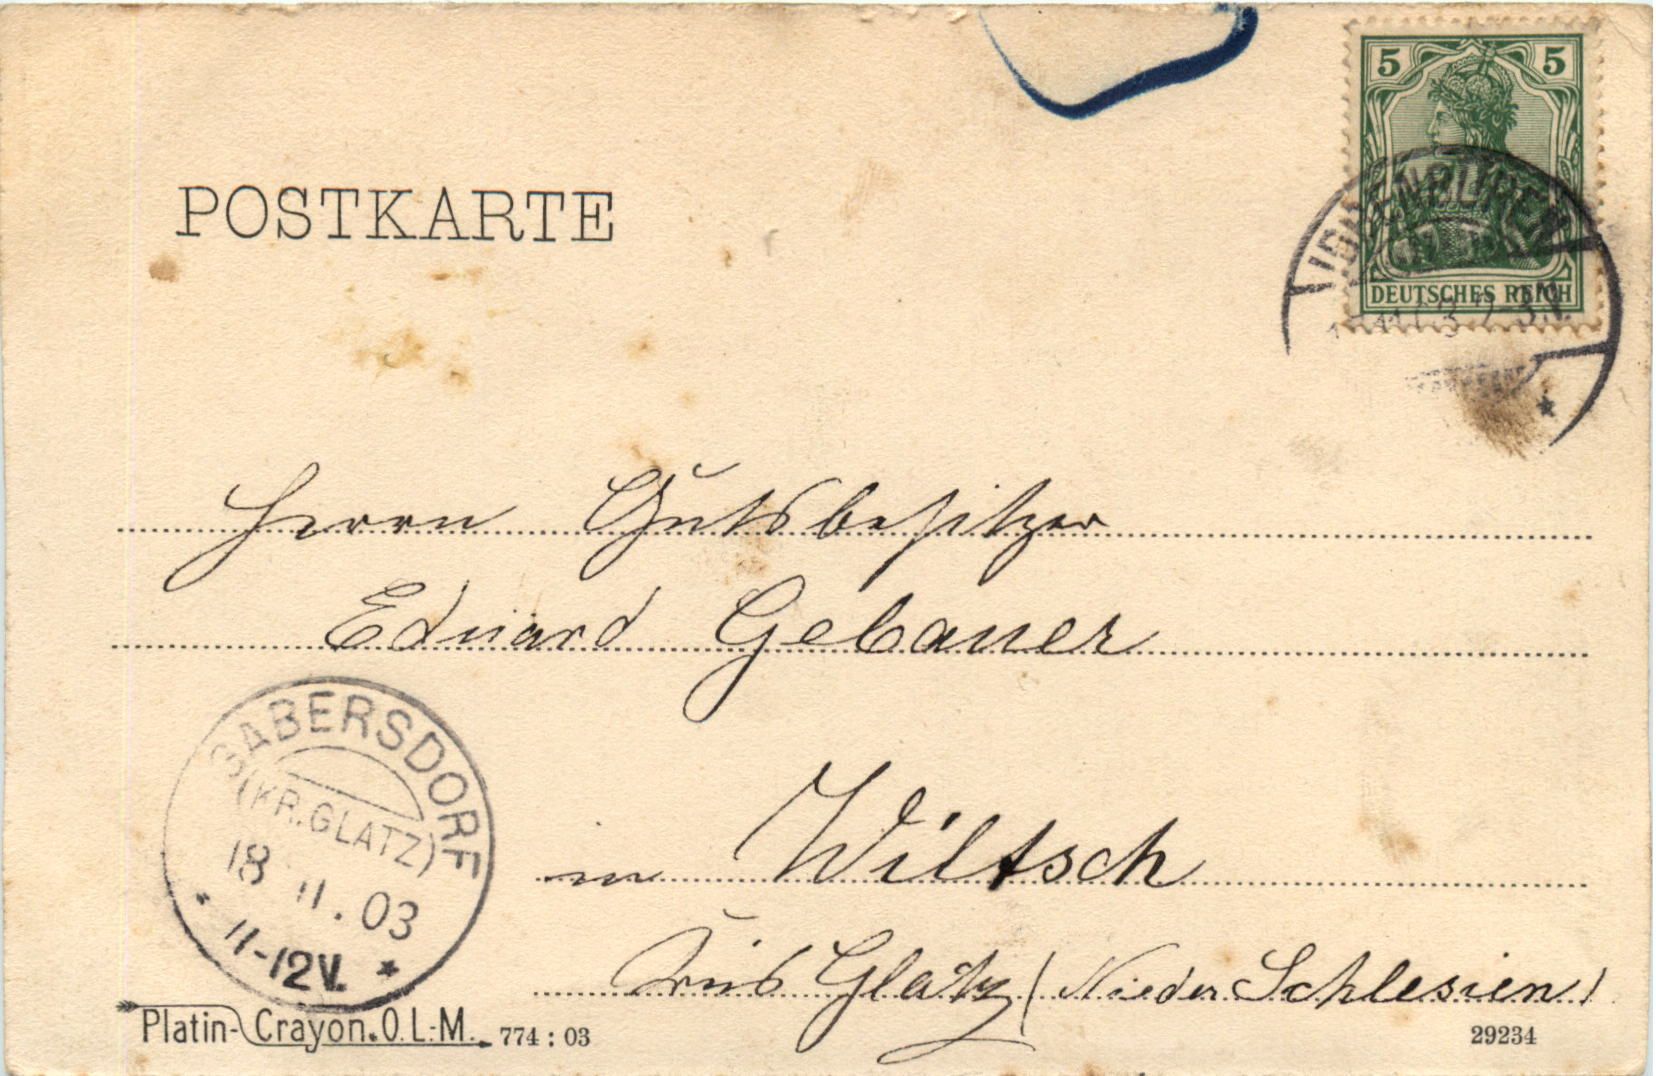 POSTKARTE
5 5
DEUTSCHES REICH
IBBENBUREN
Herrn Gutsbesitzer
Eduard Gebauer
in Wiltsch
Glatz (Nieder Schlesien)
GABERSDORF
(KR. GLATZ)
18 11.03
11-12V.
Platin-Crayon.O.L.-M. 774 : 03
29234